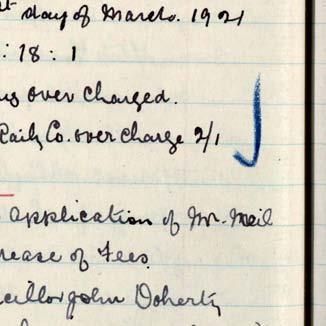 day of March. 1921
: 18 : 1
over charged.
Rail'y Co. over charge 2/1
application of Mr. Neil
rease of Fees.
cillor John Doherty